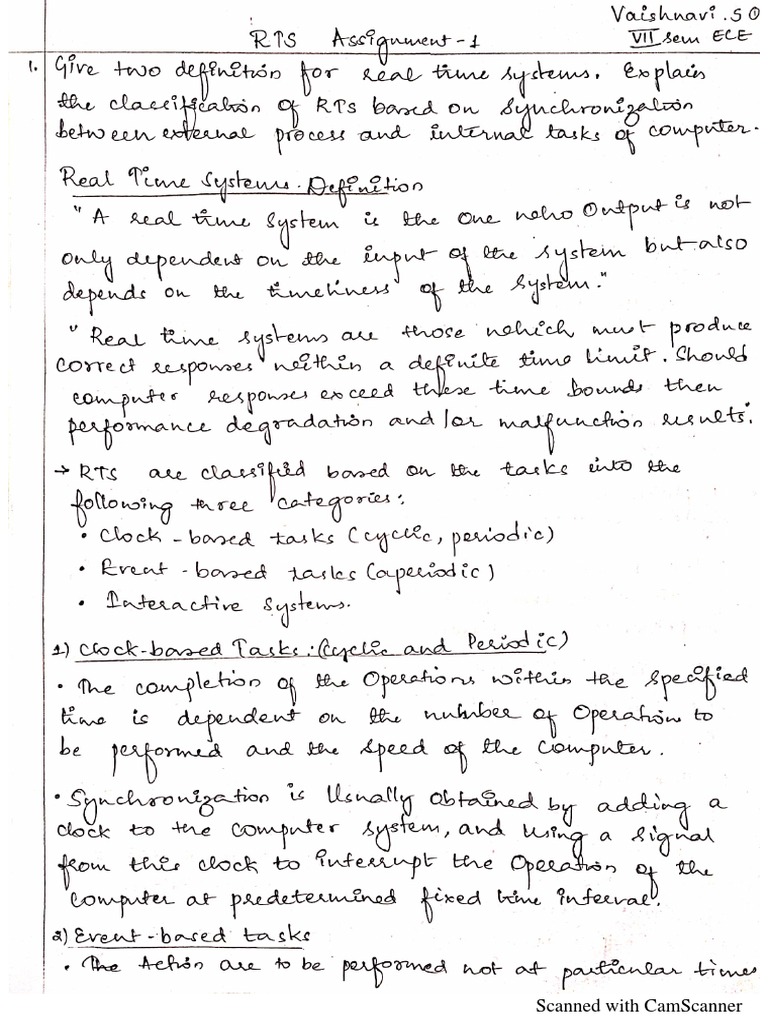 Vaishnavi.S ①
RTS Assignment-1
VII sem ECE
1. Give two definition for real time systems. Explain
the classification of RTs based on synchronization
between external process and internal tasks of computer.
Real Time Systems. Definition
"A real time system is the one who Output is not
only dependent on the input of the system but also
depends on the timeliness of the system."
"Real time systems are those which must produce
correct responses within a definite time limit. Should
computer responses exceed these time bounds then
performance degradation and/or malfunction results."
→ RTS are classified based on the tasks into the
following three categories:
• Clock-based tasks (cyclic, periodic)
• Event-based tasks (aperiodic)
• Interactive Systems.
1) Clock-based Tasks: (Cyclic and Periodic)
• The completion of the Operations within the specified
time is dependent on the number of Operation to
be performed and the speed of the computer.
• Synchronization is Usually obtained by adding a
clock to the computer system, and using a signal
from this clock to interrupt the Operation of the
computer at predetermined fixed time interval.
2) Event-based tasks
• The Action are to be performed not at particular times
Scanned with CamScanner